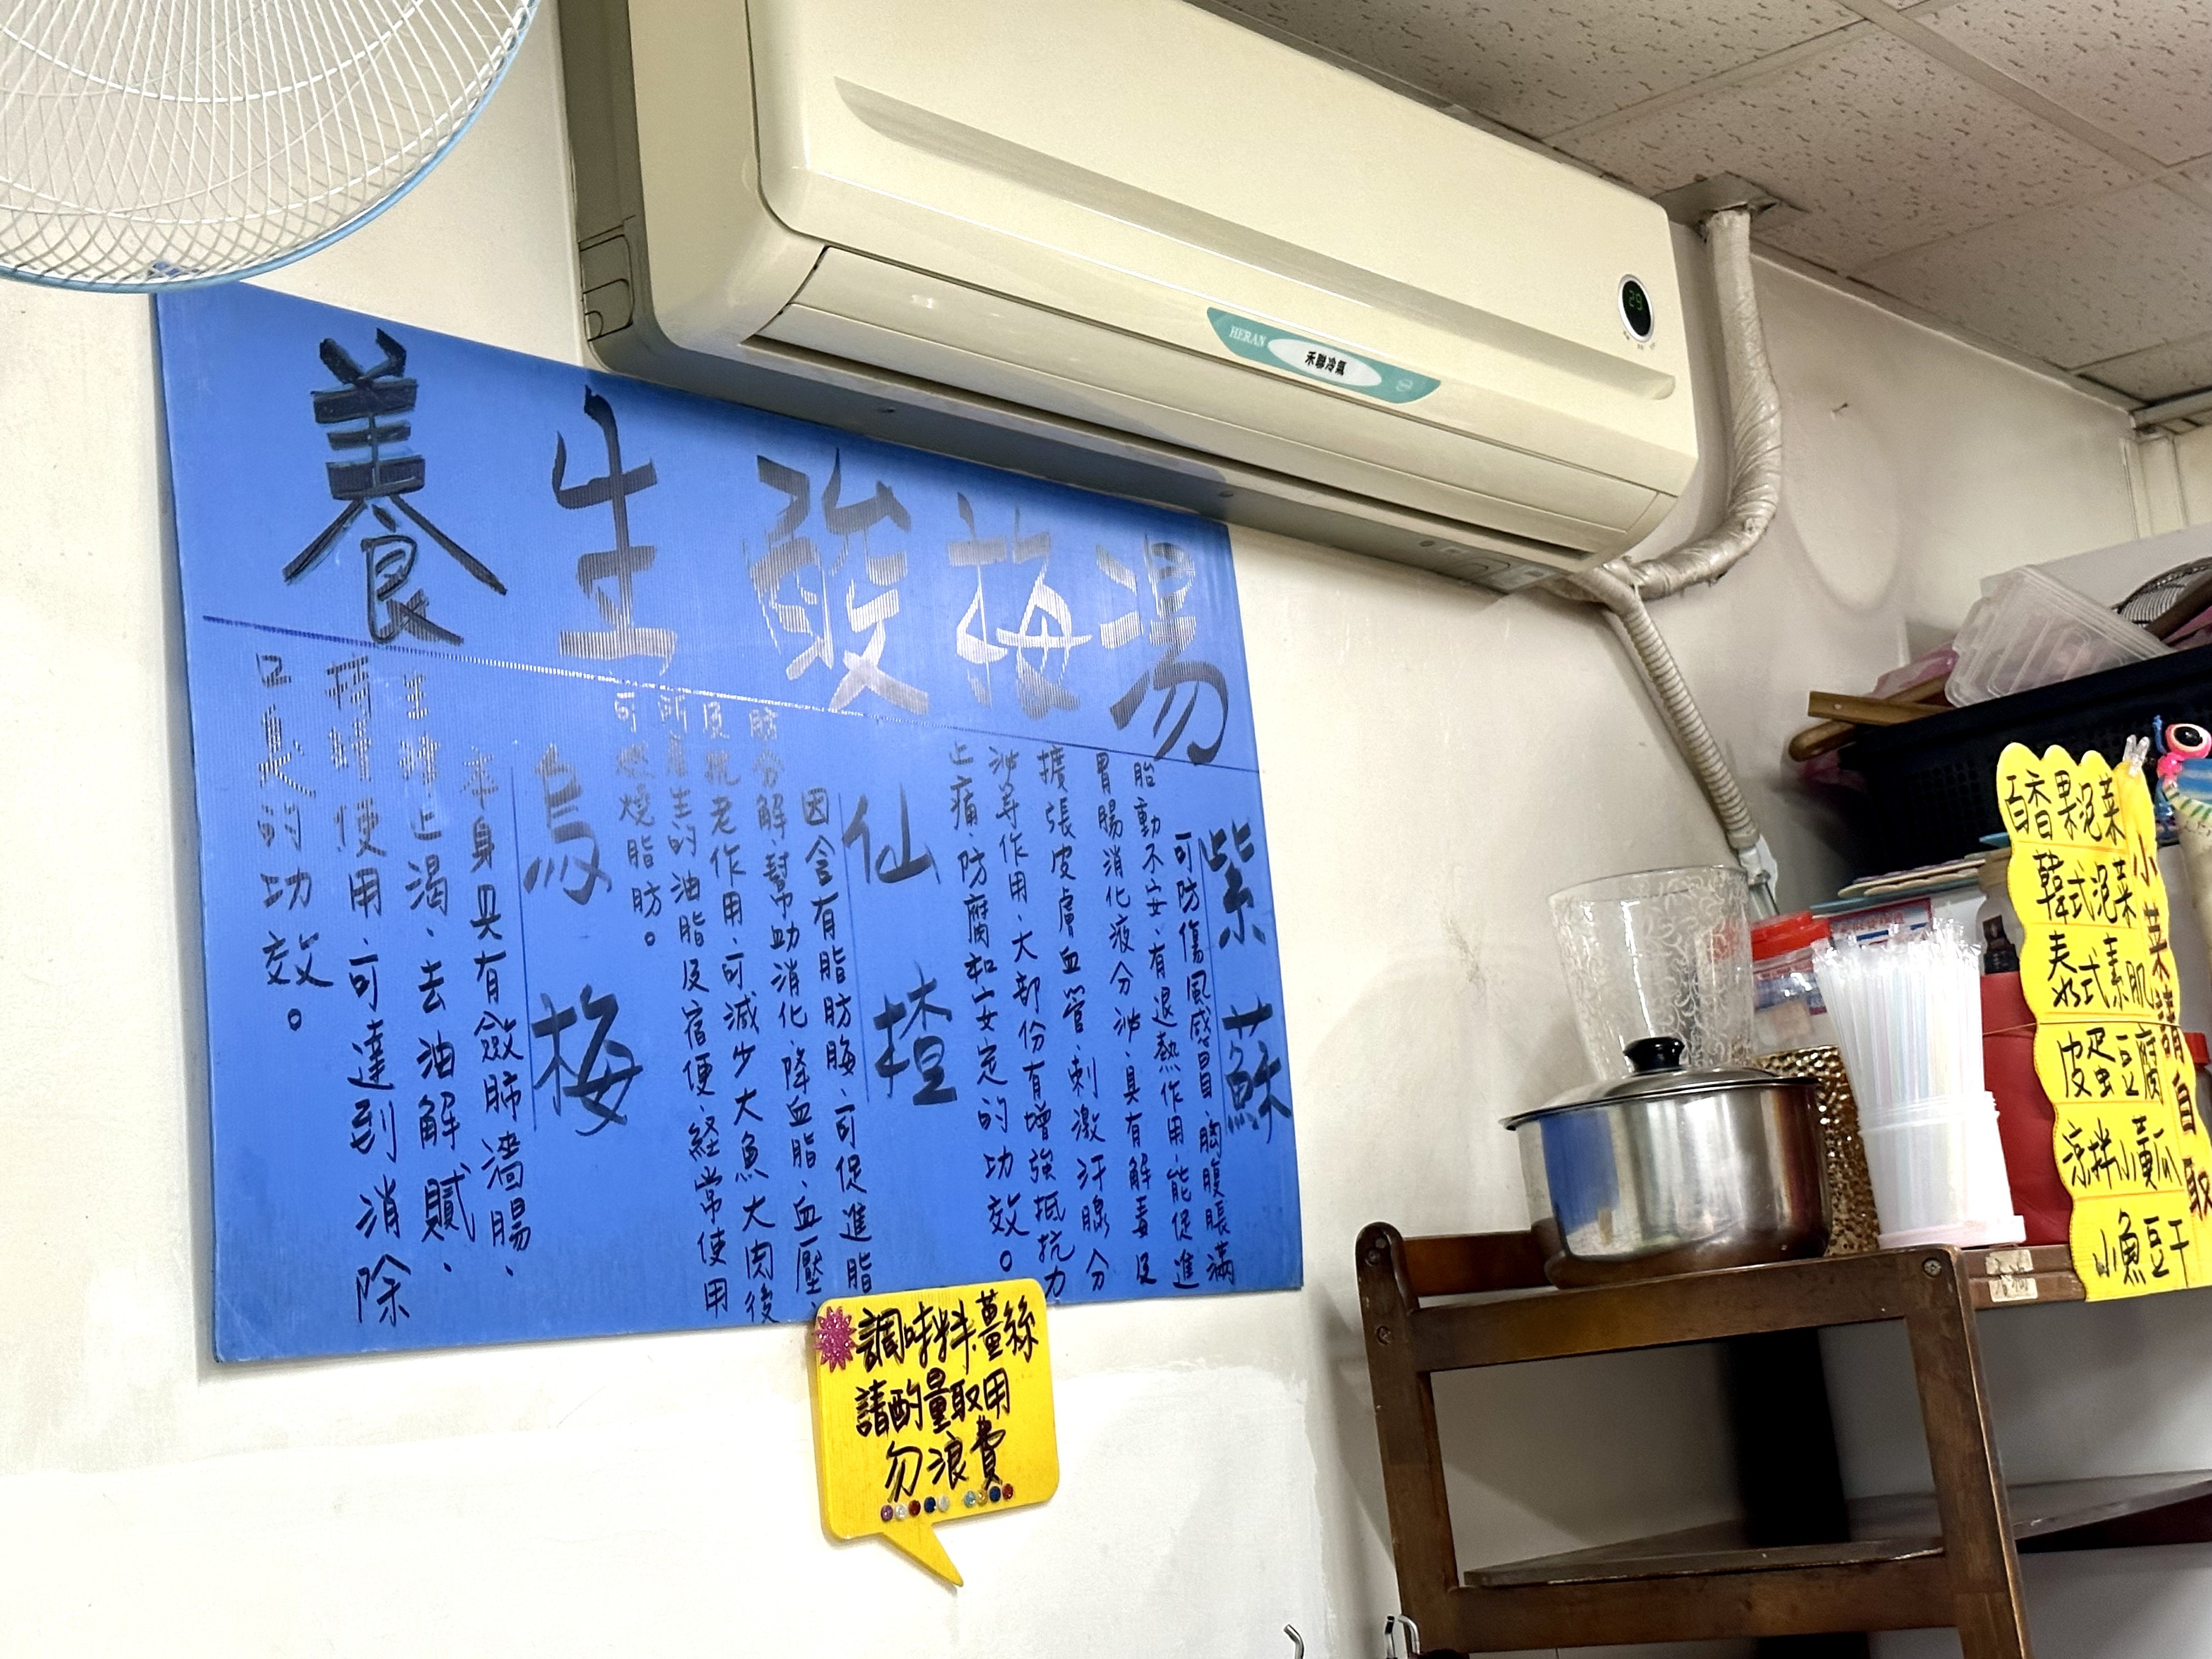 養生酸梅湯
紫蘇
可防傷風感冒、胸腹脹滿
胎動不安、有退熱作用、能促進
胃腸消化液分泌、具有解毒及
擴張皮膚血管、刺激汗腺分
泌等作用、大部份有增強抵抗力
止痛、防腐和安定的功效。
仙楂
因含有脂肪酶、可促進脂
肪分解、幫助消化、降血脂、血壓、
及抗老作用、可減少大魚大肉後
所產生的油脂及宿便、経常使用
可燃燒脂肪。
烏梅
本身具有斂肺濇腸、
生津止渴、去油解膩、
時使用、可達到消除
口臭的功效。
HERAN
禾聯冷氣
29
調味料.薑絲
請酌量取用
勿浪費
小菜請自取
百香果泡菜
韓式泡菜
泰式素肌
皮蛋豆腐
涼拌小黃瓜
小魚豆干